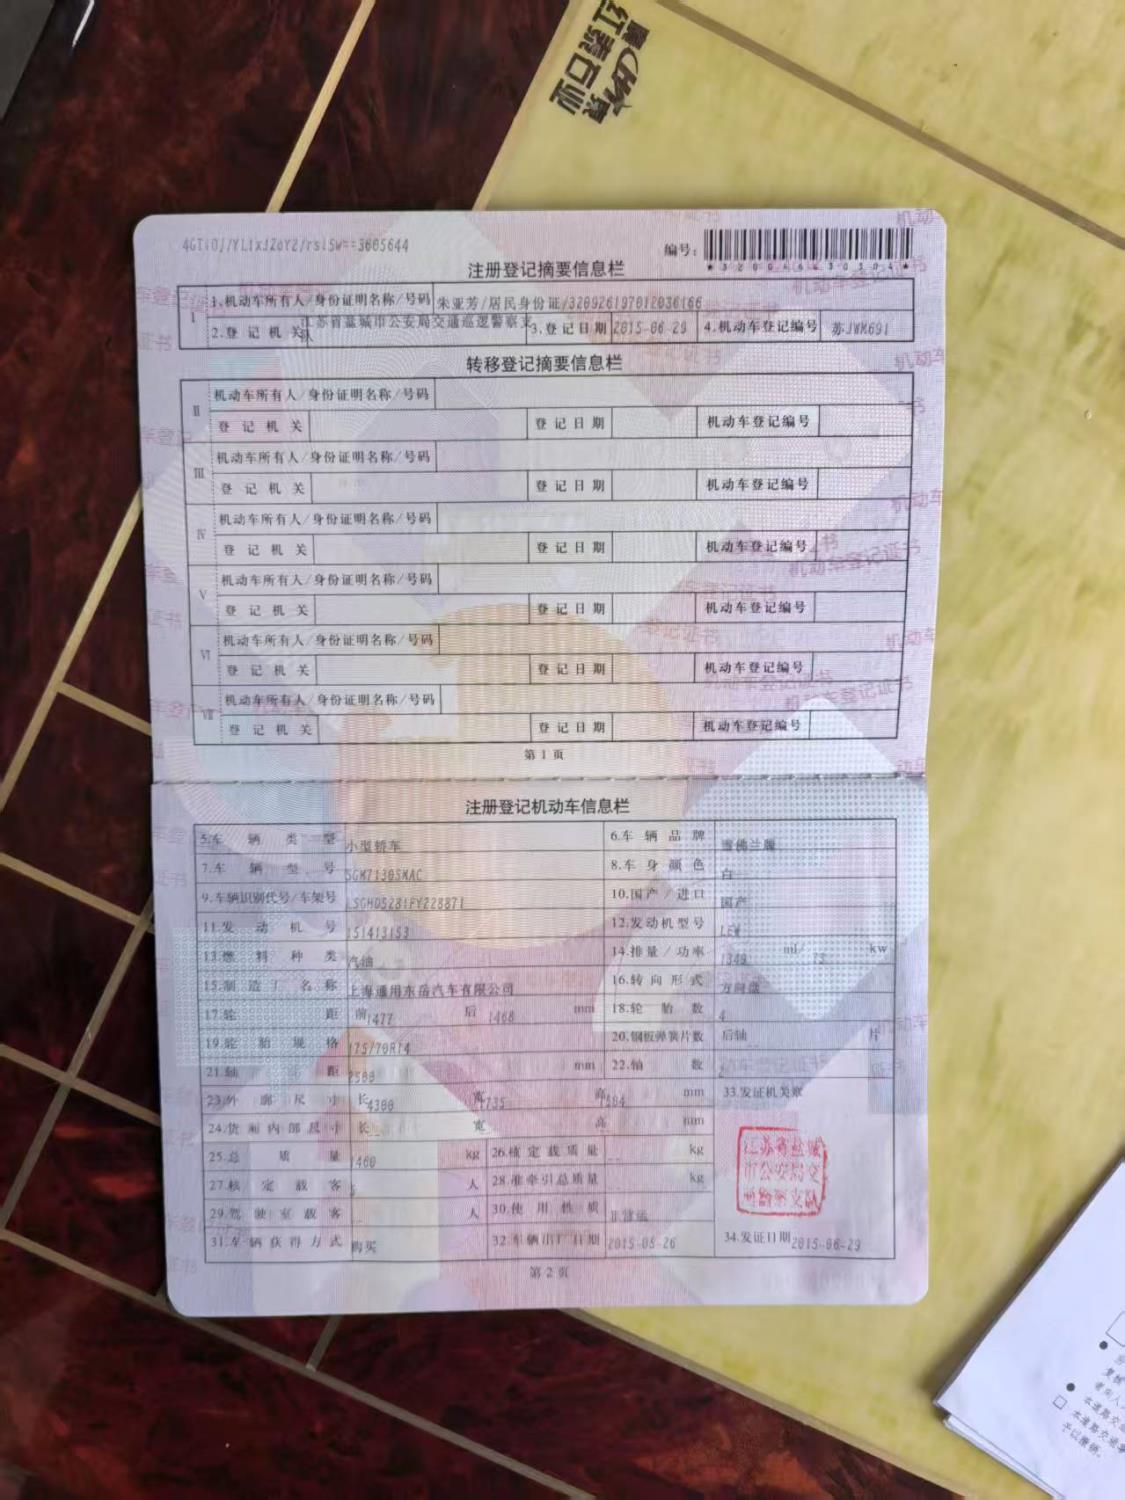 红素石业
编号:
*320046630304*
注册登记摘要信息栏
Ⅰ 1.机动车所有人/身份证明名称/号码 朱亚芳/居民身份证/320926197012036166
2.登记机关 江苏省盐城市公安局交通巡逻警察支队 3.登记日期 2015-06-29 4.机动车登记编号 苏JWK691
转移登记摘要信息栏
Ⅱ 机动车所有人/身份证明名称/号码
登记机关 登记日期 机动车登记编号
Ⅲ 机动车所有人/身份证明名称/号码
登记机关 登记日期 机动车登记编号
Ⅳ 机动车所有人/身份证明名称/号码
登记机关 登记日期 机动车登记编号
Ⅴ 机动车所有人/身份证明名称/号码
登记机关 登记日期 机动车登记编号
Ⅵ 机动车所有人/身份证明名称/号码
登记机关 登记日期 机动车登记编号
Ⅶ 机动车所有人/身份证明名称/号码
登记机关 登记日期 机动车登记编号
第1页
注册登记机动车信息栏
5.车辆类型 小型轿车 6.车辆品牌 雪佛兰牌
7.车辆型号 SGM7130SMAC 8.车身颜色 白
9.车辆识别代号/车架号 LSGHD5281FY228871 10.国产/进口 国产
11.发动机号 151413153 12.发动机型号 LEW
13.燃料种类 汽油 14.排量/功率 1349 ml/ 75 kw
15.制造厂名称 上海通用东岳汽车有限公司 16.转向形式 方向盘
17.轮距 前 1477 后 1468 mm 18.轮胎数 4
19.轮胎规格 175/70R14 20.钢板弹簧片数 后轴 片
21.轴距 2500 mm 22.轴数
23.外廓尺寸 长 4300 宽 1735 高 1504 mm 33.发证机关章
24.货厢内部尺寸 长 宽 高 mm
25.总质量 1460 kg 26.核定载质量 kg
27.核定载客 5 人 28.准牵引总质量 kg
29.驾驶室载客 人 30.使用性质 非营运
31.车辆获得方式 购买 32.车辆出厂日期 2015-05-26 34.发证日期 2015-06-29
江苏省盐城
市公安局交
通警察支队
第2页